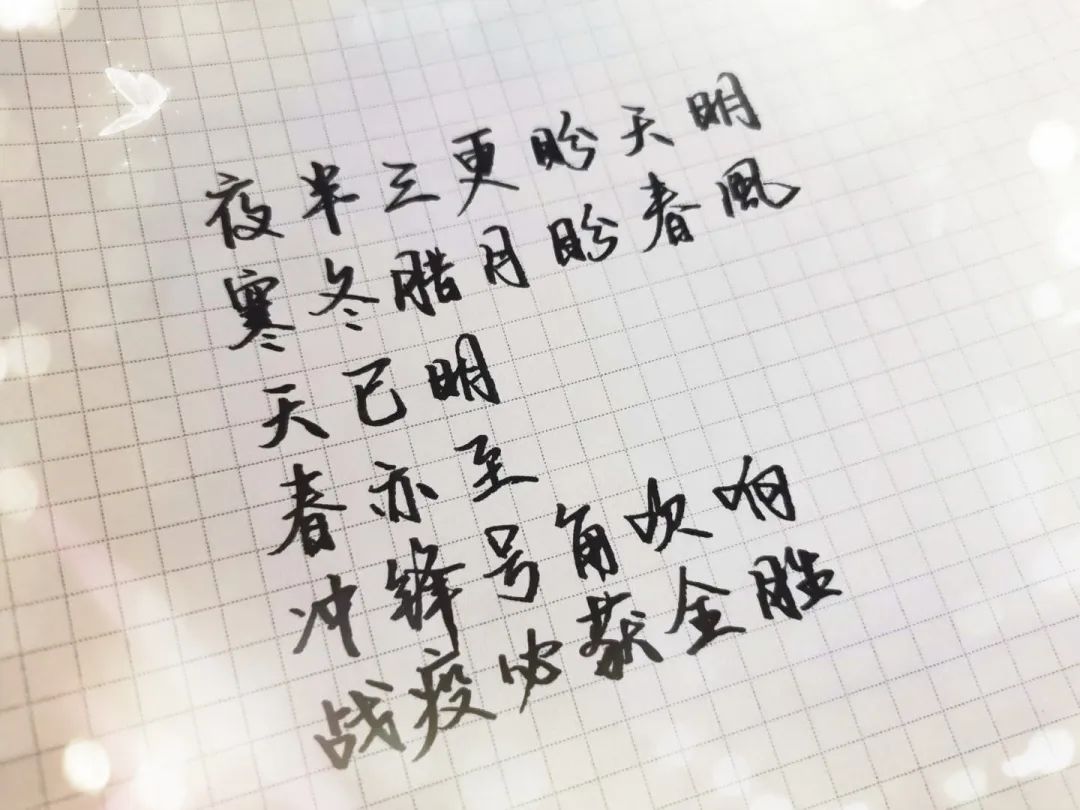 夜半三更盼天明
寒冬腊月盼春風
天已明
春亦至
冲锋号角吹响
战疫必获全胜